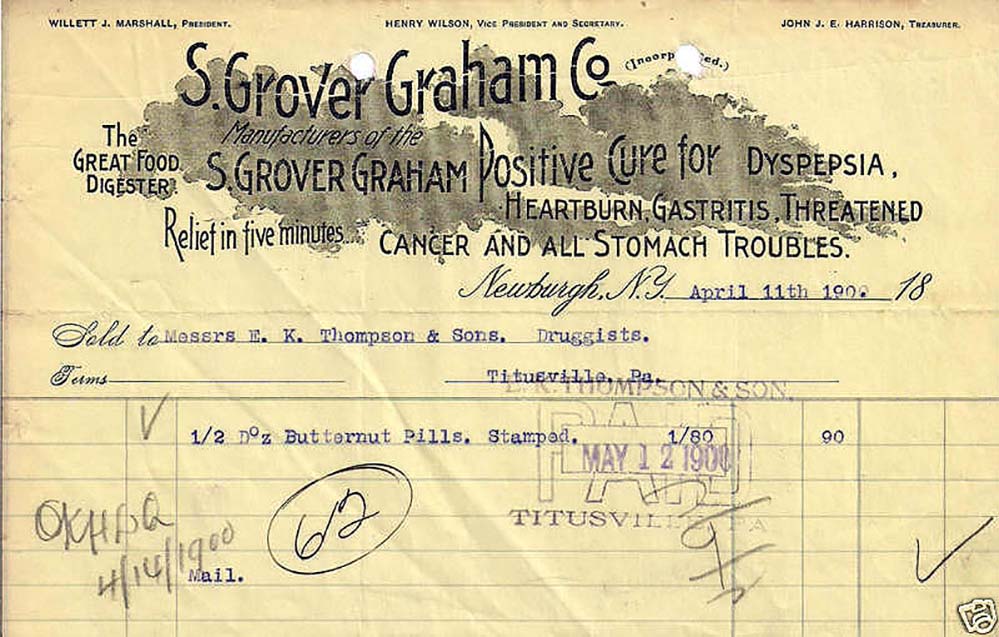 WILLETT J. MARSHALL, PRESIDENT. HENRY WILSON, VICE PRESIDENT AND SECRETARY. JOHN J. E. HARRISON, TREASURER.
S. Grover Graham Co
Manufacturers of the
The
GREAT FOOD
DIGESTER.
S. GROVER GRAHAM Positive Cure for DYSPEPSIA,
HEARTBURN, GASTRITIS, THREATENED
Relief in five minutes...
CANCER AND ALL STOMACH TROUBLES.
Newburgh, N.Y. April 11th 1900 18
Sold to Messrs E. K. Thompson & Sons. Druggists.
Terms Titusville, Pa.
THOMPSON & SON.
1/2 Doz Butternut Pills. Stamped. 1/80 90
PAID
MAY 12 1900
TITUSVILLE, PA
62
4/14/1900
Mail.